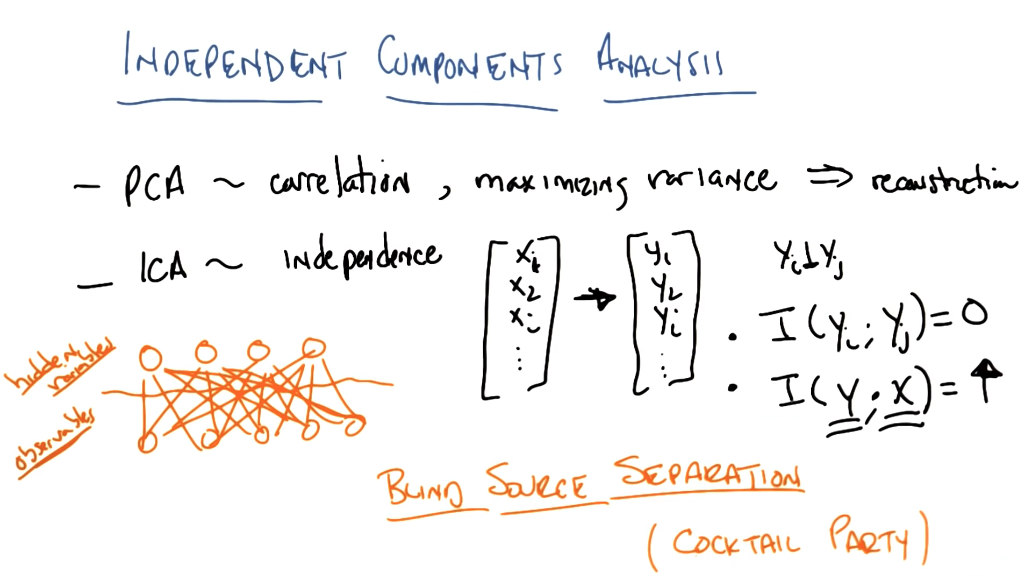 INDEPENDENT COMPONENTS ANALYSIS
– PCA ~ correlation, maximizing variance ⇒ reconstruction
– ICA ~ independence
[x₁ x₂ xᵢ ⋮] → [y₁ y₂ yᵢ ⋮]
yᵢ ⊥ yⱼ
• I(yᵢ; yⱼ) = 0
• I(Y; X) = ↑
hidden variables
observables
BLIND SOURCE SEPARATION
(COCKTAIL PARTY)